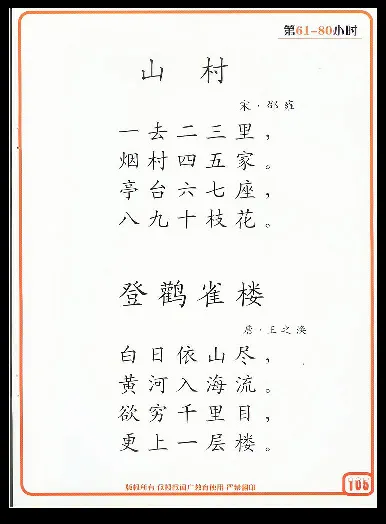 第61-80小时
山村
宋·邵雍
一去二三里，
烟村四五家。
亭台六七座，
八九十枝花。
登鹳雀楼
唐·王之涣
白日依山尽，
黄河入海流。
欲穷千里目，
更上一层楼。
版权所有
105